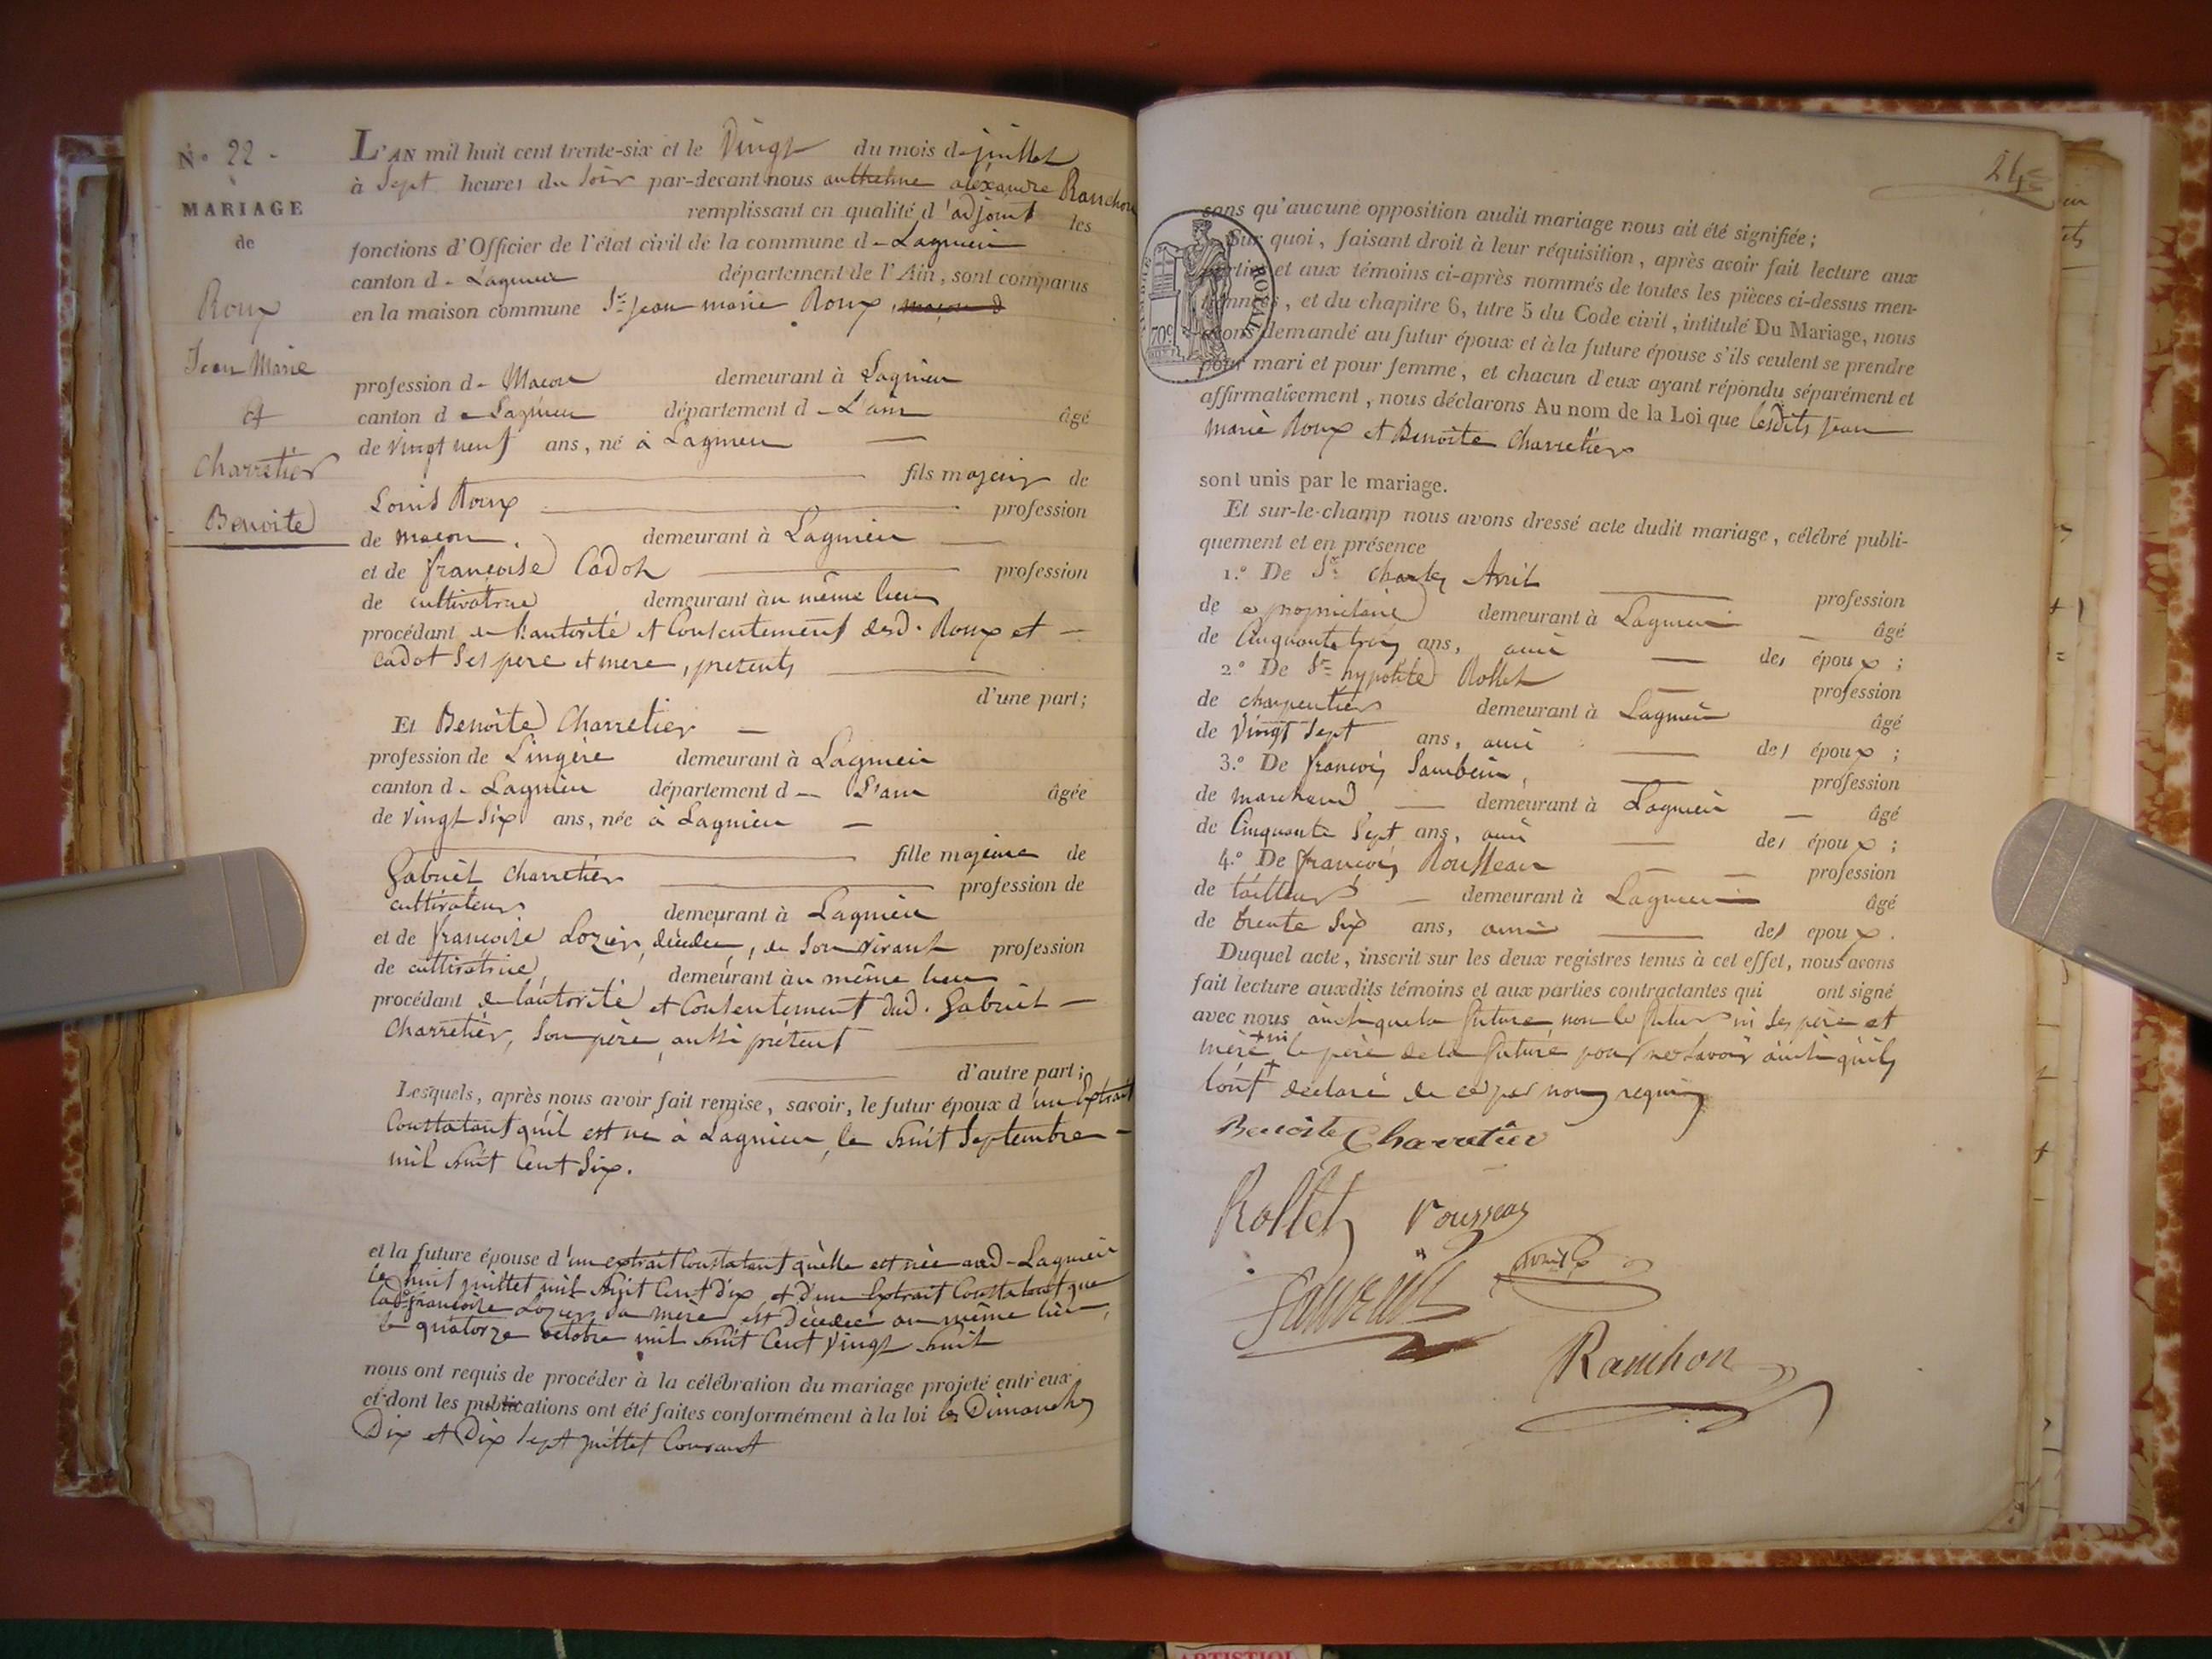 N.° 22.
MARIAGE
de
Roux
Jean Marie
et
Charretier
Benoite
L'AN mil huit cent trente-six et le Vingt du mois de juillet
à Sept heures du soir par-devant nous anthelme aléxandre Ranchon
remplissant en qualité d'adjoint les
fonctions d'Officier de l'état civil de la commune de Lagnieu
canton de Lagnieu département de l'Ain, sont comparus
en la maison commune Sr. jean marie Roux, maçon d
profession de Macon demeurant à Lagnieu
canton de Lagnieu département de L'ain âgé
de vingt neuf ans, né à Lagnieu
fils majeur de
Louis Roux profession
de macon, demeurant à Lagnieu
et de françoise Cadot profession
de cultivatrice demeurant au même lieu
procédant de l'autorité et Consentement desd. Roux et
Cadot ses pere et mere, présents
d'une part;
Et Benoite Charretier
profession de Lingère demeurant à Lagnieu
canton de Lagnieu département de L'ain âgée
de vingt six ans, née à Lagnieu
fille majeure de
Gabriel Charretier profession de
cultivateur demeurant à Lagnieu
et de françoise Lozier, décédée, de son vivant profession
de cultivatrice, demeurant au même lieu
procédant de l'autorité et Consentement dud. Gabriel
Charretier, son père, aussi présent
d'autre part;
Lesquels, après nous avoir fait remise, savoir, le futur époux d'un Extrait
Constatant qu'il est né à Lagnieu, le huit Septembre
mil huit Cent Six.
et la future épouse d'un extrait Constatant qu'elle est née aud. Lagnieu
le huit juillet mil huit Cent dix, et d'un Extrait Constatant que
lad. françoise Lozier, sa mère, est décédée au même lieu,
le quatorze octobre mil huit Cent vingt huit
nous ont requis de procéder à la célébration du mariage projeté entr'eux
et dont les publications ont été faites conformément à la loi les Dimanches
Dix et Dix sept juillet Courant
24
TIMBRE ROYAL
70c
sans qu'aucune opposition audit mariage nous ait été signifiée;
Sur quoi, faisant droit à leur réquisition, après avoir fait lecture aux
parties et aux témoins ci-après nommés de toutes les pièces ci-dessus men-
tionnées, et du chapitre 6, titre 5 du Code civil, intitulé Du Mariage, nous
avons demandé au futur époux et à la future épouse s'ils veulent se prendre
pour mari et pour femme, et chacun d'eux ayant répondu séparément et
affirmativement, nous déclarons Au nom de la Loi que lesdits jean
marie Roux et Benoite Charretier
sont unis par le mariage.
Et sur-le-champ nous avons dressé acte dudit mariage, célébré publi-
quement et en présence
1.° De Sr. Charles Avril profession
de propriétaire demeurant à Lagnieu âgé
de Cinquante trois ans, ami des époux;
2.° De Sr. hypolite Rollet profession
de charpentier demeurant à Lagnieu âgé
de Vingt Sept ans, ami des époux;
3.° De françois profession
de marchand demeurant à Lagnieu âgé
de Cinquante Sept ans, ami des époux;
4.° De françois Rousseau profession
de tailleur demeurant à Lagnieu âgé
de trente Six ans, ami des époux.
Duquel acte, inscrit sur les deux registres tenus à cet effet, nous avons
fait lecture auxdits témoins et aux parties contractantes qui ont signé
avec nous ainsi que la future, non le futur ni ses père et
mère + ni le père de la future pour ne savoir ainsi qu'ils
l'ont déclaré de ce par nous requis
Benoite Charretier
Rollet rousseau
avril
Ranchon